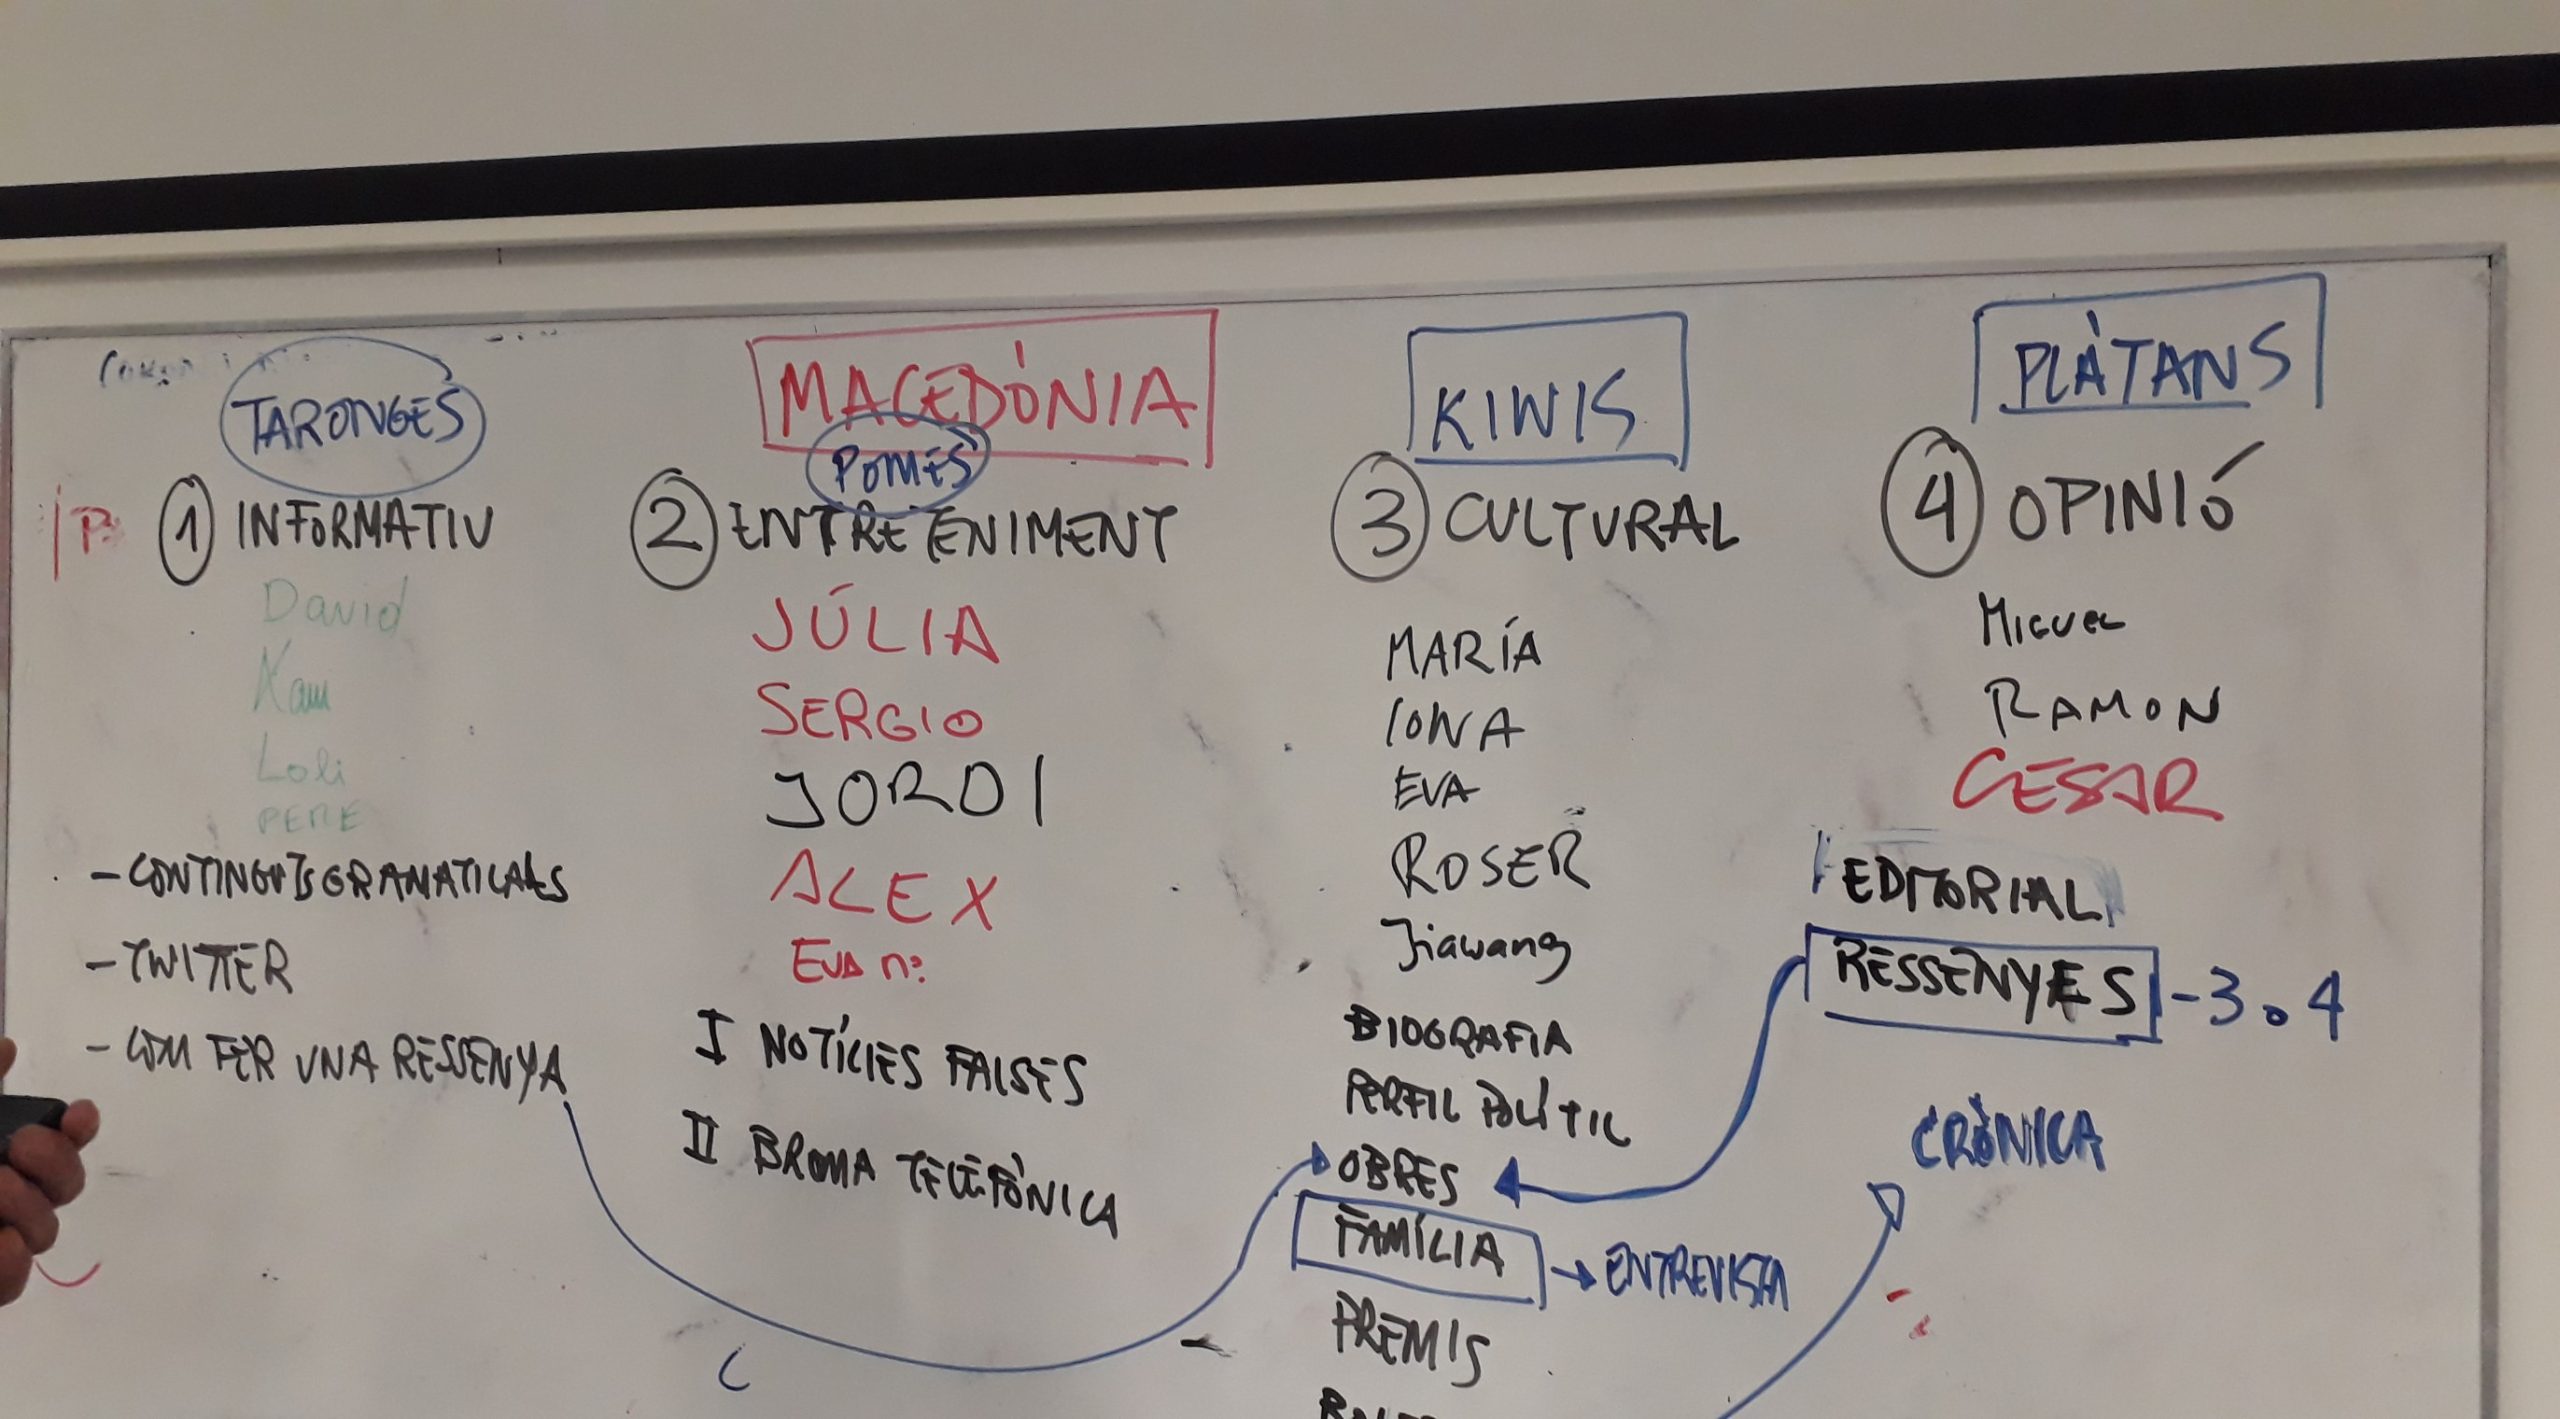 TARONGES
1 INFORMATIU
David
Loli
PERE
- CONTINGUTS GRAMATICALS
- TWITTER
- COM FER UNA RESSENYA
MACEDÒNIA
POMES
2 ENTRETENIMENT
JÚLIA
SERGIO
JORDI
ALEX
EVA
I NOTÍCIES FALSES
II BROMA TELEFÒNICA
KIWIS
3 CULTURAL
MARÍA
IONA
EVA
ROSER
Jiawang
BIOGRAFIA
PERFIL POLÍTIC
OBRES
FAMÍLIA → ENTREVISTA
PREMIS
PLÀTANS
4 OPINIÓ
MIGUEL
RAMON
CESAR
EDITORIAL
RESSENYES - 3 o 4
CRÒNICA